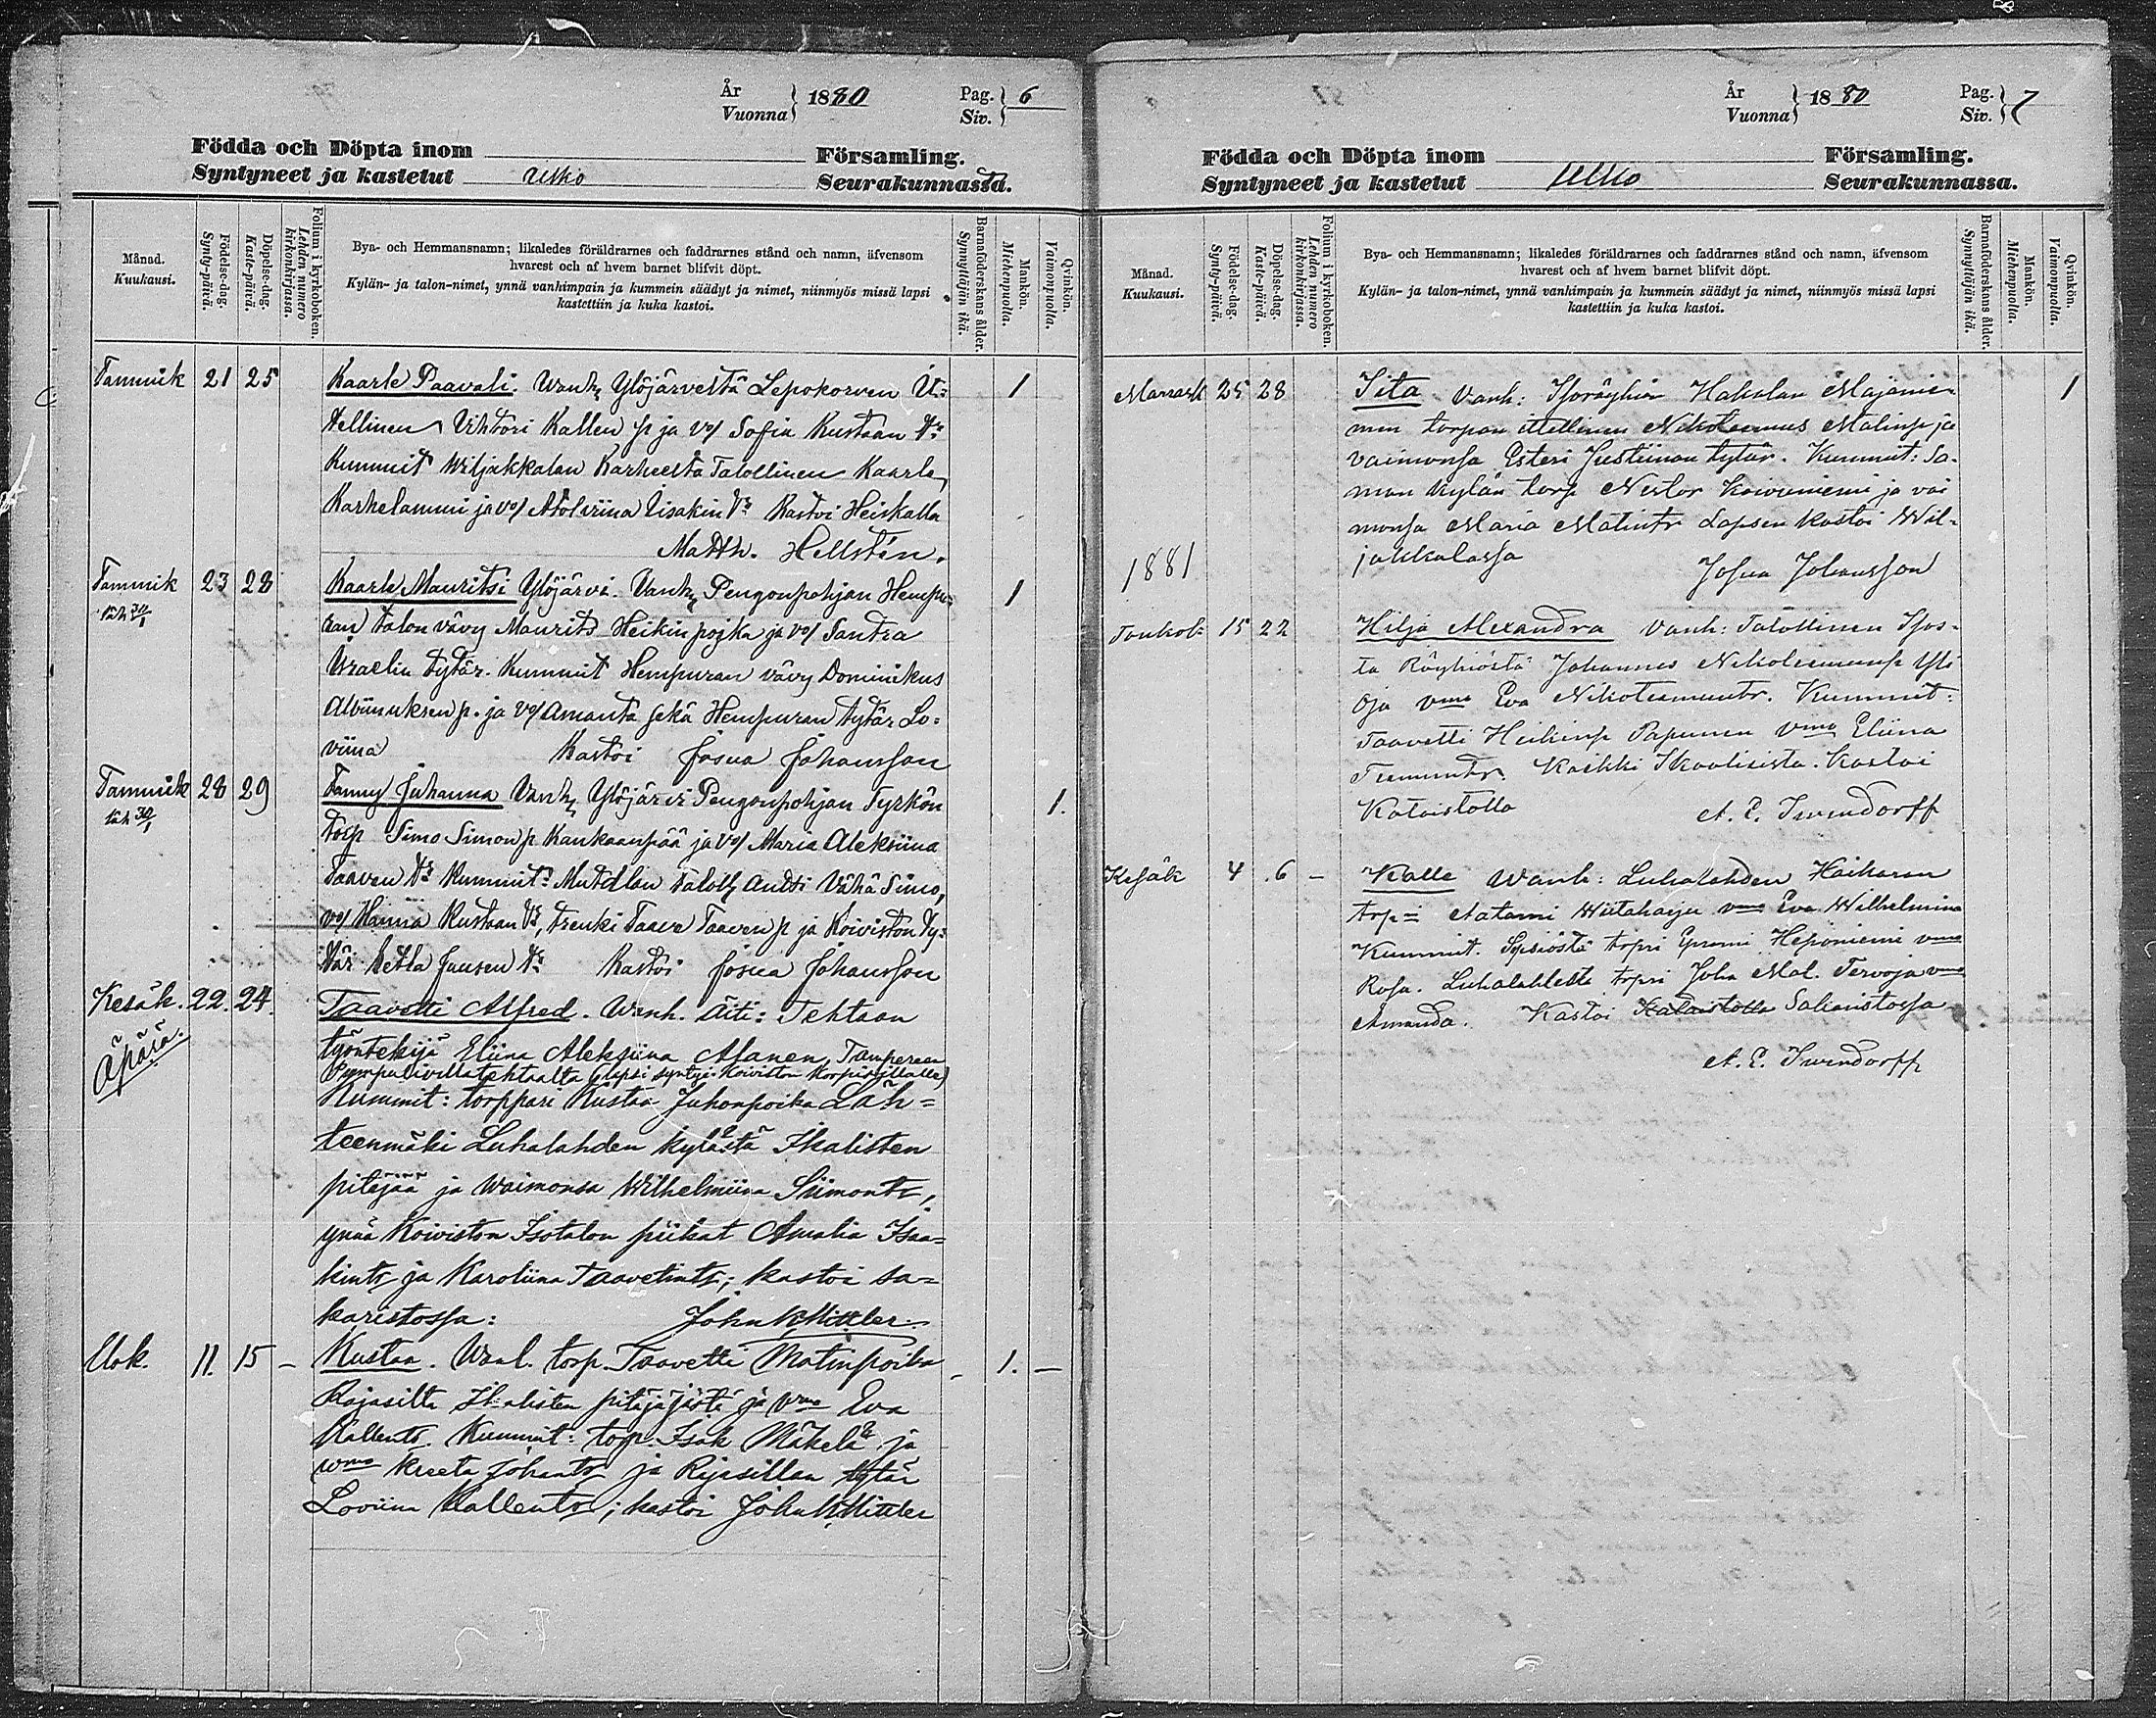 År
Vuonna
1880
Pag.
Siv.
6
Födda och Döpta inom Församling.
Syntyneet ja kastetut Ulko Seurakunnassa.
Månad.
Kuukausi.
Födelse-dag.
Synty-päivä.
Döpelse-dag.
Kaste-päivä.
Folium i kyrkoboken.
Lehden numero
kirkonkirjassa.
Bya- och Hemmansnamn; likaledes föräldrarnes och faddrarnes stånd och namn, äfvensom
hvarest och af hvem barnet blifvit döpt.
Kylän- ja talon-nimet, ynnä vanhimpain ja kummein säädyt ja nimet, niinmyös missä lapsi
kastettiin ja kuka kastoi.
Barnaföderskans ålder.
Synnyttäjän ikä.
Mankön.
Miehenpuolta.
Qvinkön.
Vaimonpuolta.
Tammik 21 25 Kaarle Paavali. Wanh. Ylöjärvestä Lepokorven It= 1
tellinen Vihtori Kallen p ja vo/ Sofia Kustaan tr
Kummit Wiljakkalan Karheesta Talollinen Kaarle
Karhelammi ja vo/ Atolviina Iisakin tr Kastoi Heiskalla
Matth. Hellstén.
Tammik 23 28 Kaarle Mauritsi Ylöjärvi. Vanh. Pengonpohjan Hempu= 1
ran talon vävy Maurits Heikin pojka ja vo/ Santra
Israelin tytär. Kummit Hempuran vävy Dominikus
Albinuksen p. ja vo/ Amanta sekä Hempuran tytär Lo=
viina Kastoi Josua Johansson
Tammik 28 29 Fanny Juhanna Vanh. Ylöjärvi Pengonpohjan Tyrkön 1.
torp Simo Simon p Kankaanpää ja vo/ Maria Aleksiina
Taaven tr Kummit: Mutalan Taloll. Antti Vähä Simo,
vo/ Hanna Kustaan tr, trenki Taave Taaven p ja Koiviston ty=
tär Jetta Juusen tr Kastoi Josua Johansson
Kesäk. 22. 24. Taavetti Alfred. Wanh. Äiti: Tehtaan
Äpärä.
työntekijä Eliina Aleksiina Alanen, Tampereen
Pumpulivillatehtaalta (lapsi syntyi Koiviston Korpisillalle)
Kummit: torppari Kustaa Juhonpoika Läh=
teenmäki Luhalahden kylästä Ikalisten
pitäjää ja Waimonsa Wilhelmiina Siimontr,
ynnä Koiviston Isotalon piikat Amalia Isaa=
kintr ja Karoliina Taavetintr; kastoi sa=
karistossa: John W Hittler
Elok. 11. 15 – Kustaa. Wanh. torp. Taavetti Matinpoika 1. –
Rajasilta Ikalisten pitäjäjästä ja vmo Eva
Kallentr. Kummit: torp. Isak Mäkelä ja
wmo Kreeta Johantr ja Rajasillan tytär
Loviina Kallentr; kastoi John W Hittler
År
Vuonna
1880
Pag.
Siv.
7
Födda och Döpta inom Församling.
Syntyneet ja kastetut Ulko Seurakunnassa.
Månad.
Kuukausi.
Födelse-dag.
Synty-päivä.
Döpelse-dag.
Kaste-päivä.
Folium i kyrkoboken.
Lehden numero
kirkonkirjassa.
Bya- och Hemmansnamn; likaledes föräldrarnes och faddrarnes stånd och namn, äfvensom
hvarest och af hvem barnet blifvit döpt.
Kylän- ja talon-nimet, ynnä vanhimpain ja kummein säädyt ja nimet, niinmyös missä lapsi
kastettiin ja kuka kastoi.
Barnaföderskans ålder.
Synnyttäjän ikä.
Mankön.
Miehenpuolta.
Qvinkön.
Vaimonpuolta.
Marrask 25 28 Iita Vanh: Isoröyhiön Hakalan Majanie= 1
men torpan ittellinen Nikoteemus Matinp ja
vaimonsa Esteri Justiinan tytär. Kummit: Sa=
man kylän torp Nestor Koivuniemi ja vai
monsa Maria Matintr Lapsen kastoi Wil=
jakkalassa Josua Johansson
1881
Toukok 15 22 Hilja Alexandra Vanh: Talollinen Isos=
ta Röyhiöstä Johannes Nikoteemunp Yli
Oja vmo Eva Nikoteemuntr. Kummit:
Taavetti Heikinp Papunen vmo Eliina
Teemuntr. Kaikki Ikaalisista. Kastoi
Kataistolla A. E. Iwendorff
Kesäk 4 6 – Kalle Wanh: Luhalahden Haikaran
trp= Aatami Wiitaharju vmo Eva Wilhelmina
Kummit. Sipsiöstä torpri Eprami Heponiemi vmo
Rosa. Luhalahdetta torpri Joha Mat. Tervoja vmo
Amanda. Kastoi Kataistolla Sakaristossa
A. E. Iwendorff